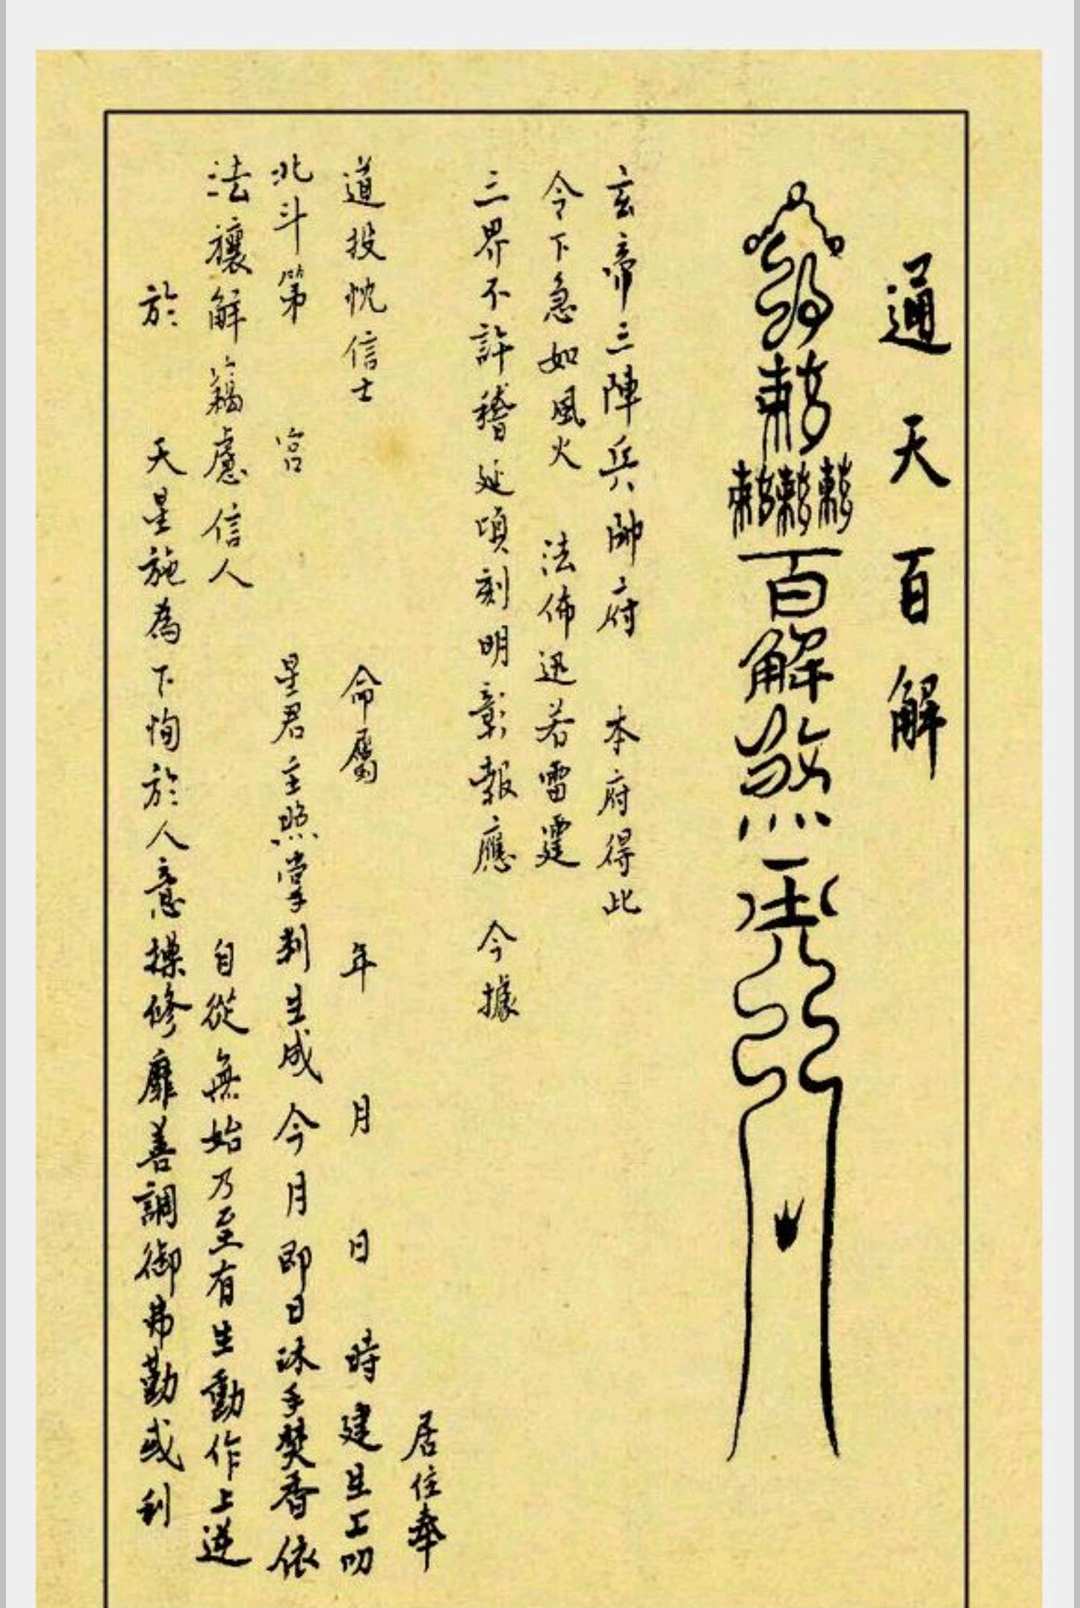 通天百解
敕
敕敕敕
百解煞
玄帝三陣兵帥府 本府得此
令下急如風火 法佈迅若雷霆
三界不許稽延頃刻明彰報應 今據
居住奉
道投忱信士 命屬 年 月 日 時建生工叩
北斗第 宮 星君主照掌判生成今月即日沐手焚香依
法禳解 慮信人 自從無始乃至有生動作上逆
於 天星施為下恂於人意操修靡善調御弗勤或利